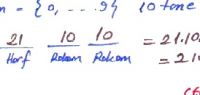 = {0, ...9} 10 tane
21/Harf 10/Rakam 10/Rakam = 21.10.
= 210